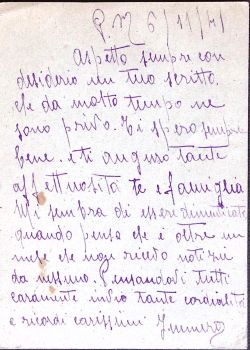 P.M 6/11/41
Aspetto sempre con
desiderio un tuo scritto,
che da molto tempo ne
sono privo. Ti spero sempre
bene. e ti auguro tante
affettuosità te e famiglia
Mi sembra di essere dimenticato
quando penso che è oltre un
mese che non ricevo notizie
da nessuno. Pensandovi tutti
caramente invio tante cordialità
e ricordi carissimi